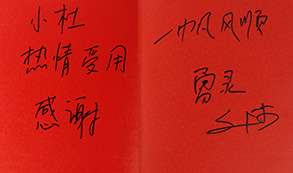 小杜
热情受用
感谢
一帆风顺